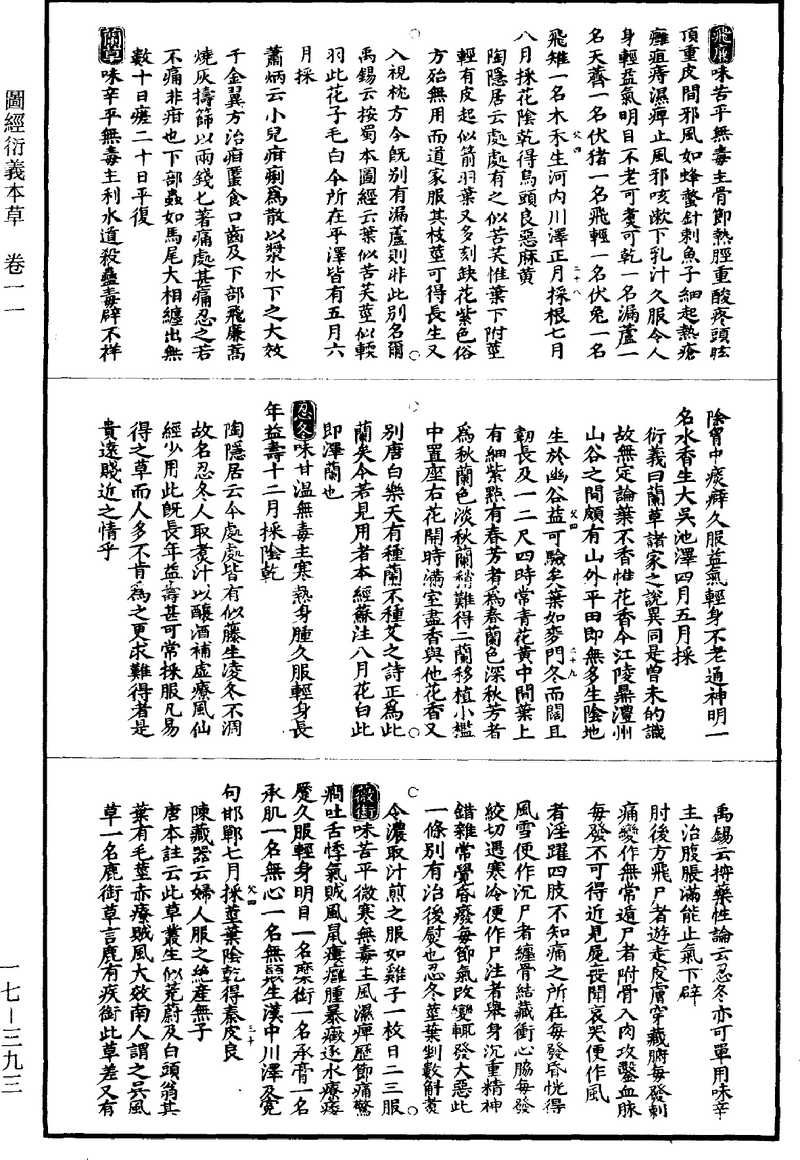 飛廉味苦平無毒主骨節熱脛重酸疼頭眩
頂重皮間邪風如蜂螫針刺魚子細起熱瘡
癰疽痔濕痺止風邪咳嗽下乳汁久服令人
身輕益氣明目不老可煮可乾一名漏蘆一
名天薺一名伏猪一名飛輕一名伏兔一名
飛雉一名木禾生河内川澤正月採根七月
八月採花陰乾得烏頭良惡麻黄
陶隱居云處處有之似苦芺惟葉下附莖
輕有皮起似箭羽葉又多刻缺花紫色俗
方殆無用而道家服其枝莖可得長生又
入視枕方今既别有漏蘆則非此别名爾
禹錫云按蜀本圖經云葉似苦芺莖似軟
羽此花子毛白今所在平澤皆有五月六
月採
蕭炳云小兒疳痢為散以漿水下之大效
千金翼方治疳䘌食口齒及下部飛廉蒿
燒灰擣篩以兩錢匕著痛處甚痛忍之若
不痛非疳也下部蟲如馬尾大相纏出無
數十日瘥二十日平復
蘭草味辛平無毒主利水道殺蠱毒辟不祥
除胷中痰癖久服益氣輕身不老通神明一
名水香生大吳池澤四月五月採
衍義曰蘭草諸家之說異同是曾未的識
故無定論葉不香惟花香今江陵鼎澧州
山谷之間頗有山外平田即無多生陰地
生於幽谷益可驗矣葉如麥門冬而闊且
韌長及一二尺四時常青花黄中間葉上
有細紫點有春芳者為春蘭色深秋芳者
為秋蘭色淡秋蘭稍難得二蘭移植小檻
中置座右花開時滿室盡香與他花香又
别唐白樂天有種蘭不種艾之詩正為此
蘭矣今若見用者本經蘇注八月花白此
即澤蘭也
忍冬味甘温無毒主寒熱身腫久服輕身長
年益壽十二月採陰乾
陶隱居云今處處皆有似藤生凌冬不凋
故名忍冬人取煮汁以釀酒補虛療風仙
經少用此既長年益壽甚可常採服凡易
得之草而人多不肯為之更求難得者是
貴遠賤近之情乎
禹錫云按藥性論云忍冬亦可單用味辛
主治腹脹滿能止氣下澼
肘後方飛尸者遊走皮膚穿藏腑每發刺
痛變作無常遁尸者附骨入肉攻鑿血脉
每發不可得近見屍喪聞哀哭便作風
者淫躍四肢不知痛之所在每發昏恍得
風雪便作沉尸者纏骨結藏衝心脇每發
絞切遇寒冷便作尸注者舉身沉重精神
錯雜常覺昏廢每節氣改變輒發大惡此
一條别有治後熨也忍冬莖葉剉數斛煮
令濃取汁煎之服如雞子一枚日二三服
薇銜味苦平微寒無毒主風濕痺歷節痛驚
癇吐舌悸氣賊風鼠瘻癰腫暴癥逐水療痿
蹷久服輕身明目一名糜銜一名承膏一名
承肌一名無心一名無顛生漢中川澤及寃
句邯鄲七月採莖葉陰乾得秦皮良
陳藏器云婦人服之絶産無子
唐本註云此草叢生似茺蔚及白頭翁其
葉有毛莖赤療賊風大效南人謂之吳風
草一名鹿銜草言鹿有疾銜此草差又有
圖經衍義本草 卷一一
一七－三九三